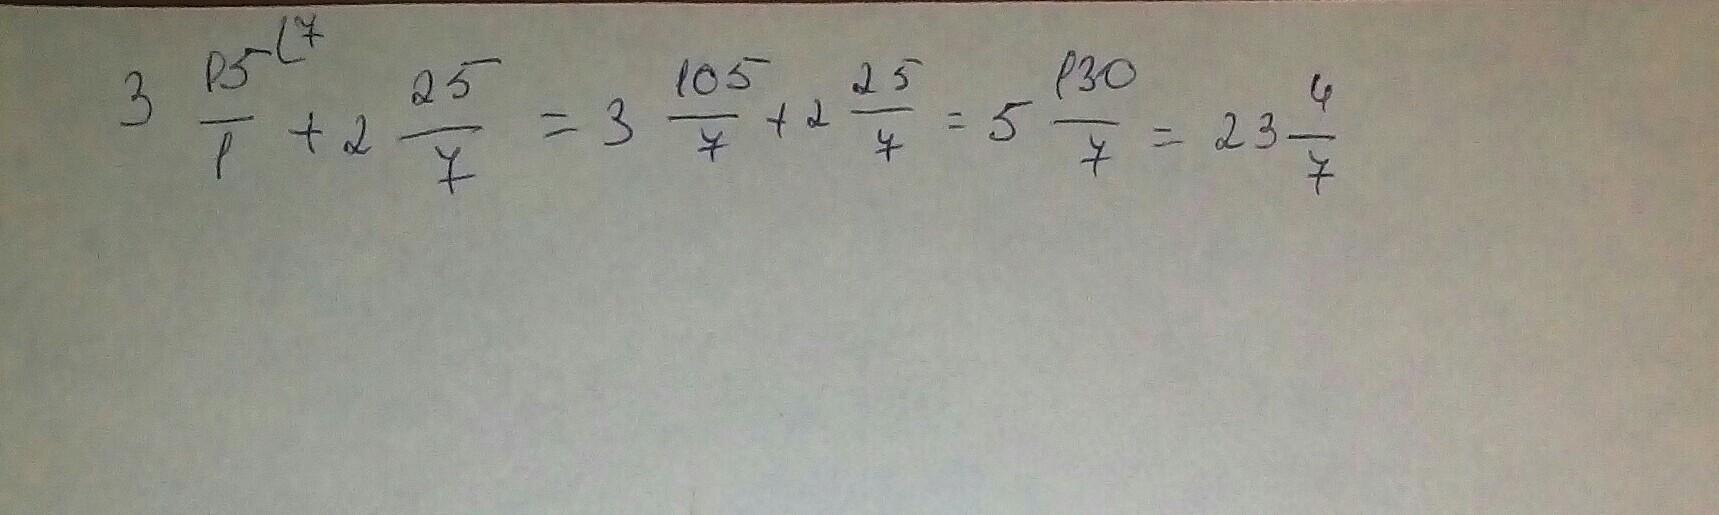 3 15/1 (7 + 2 25/7 = 3 105/7 + 2 25/7 = 5 130/7 = 23 4/7